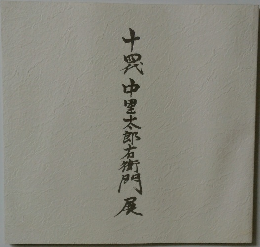 十四代中里太郎右衛門展